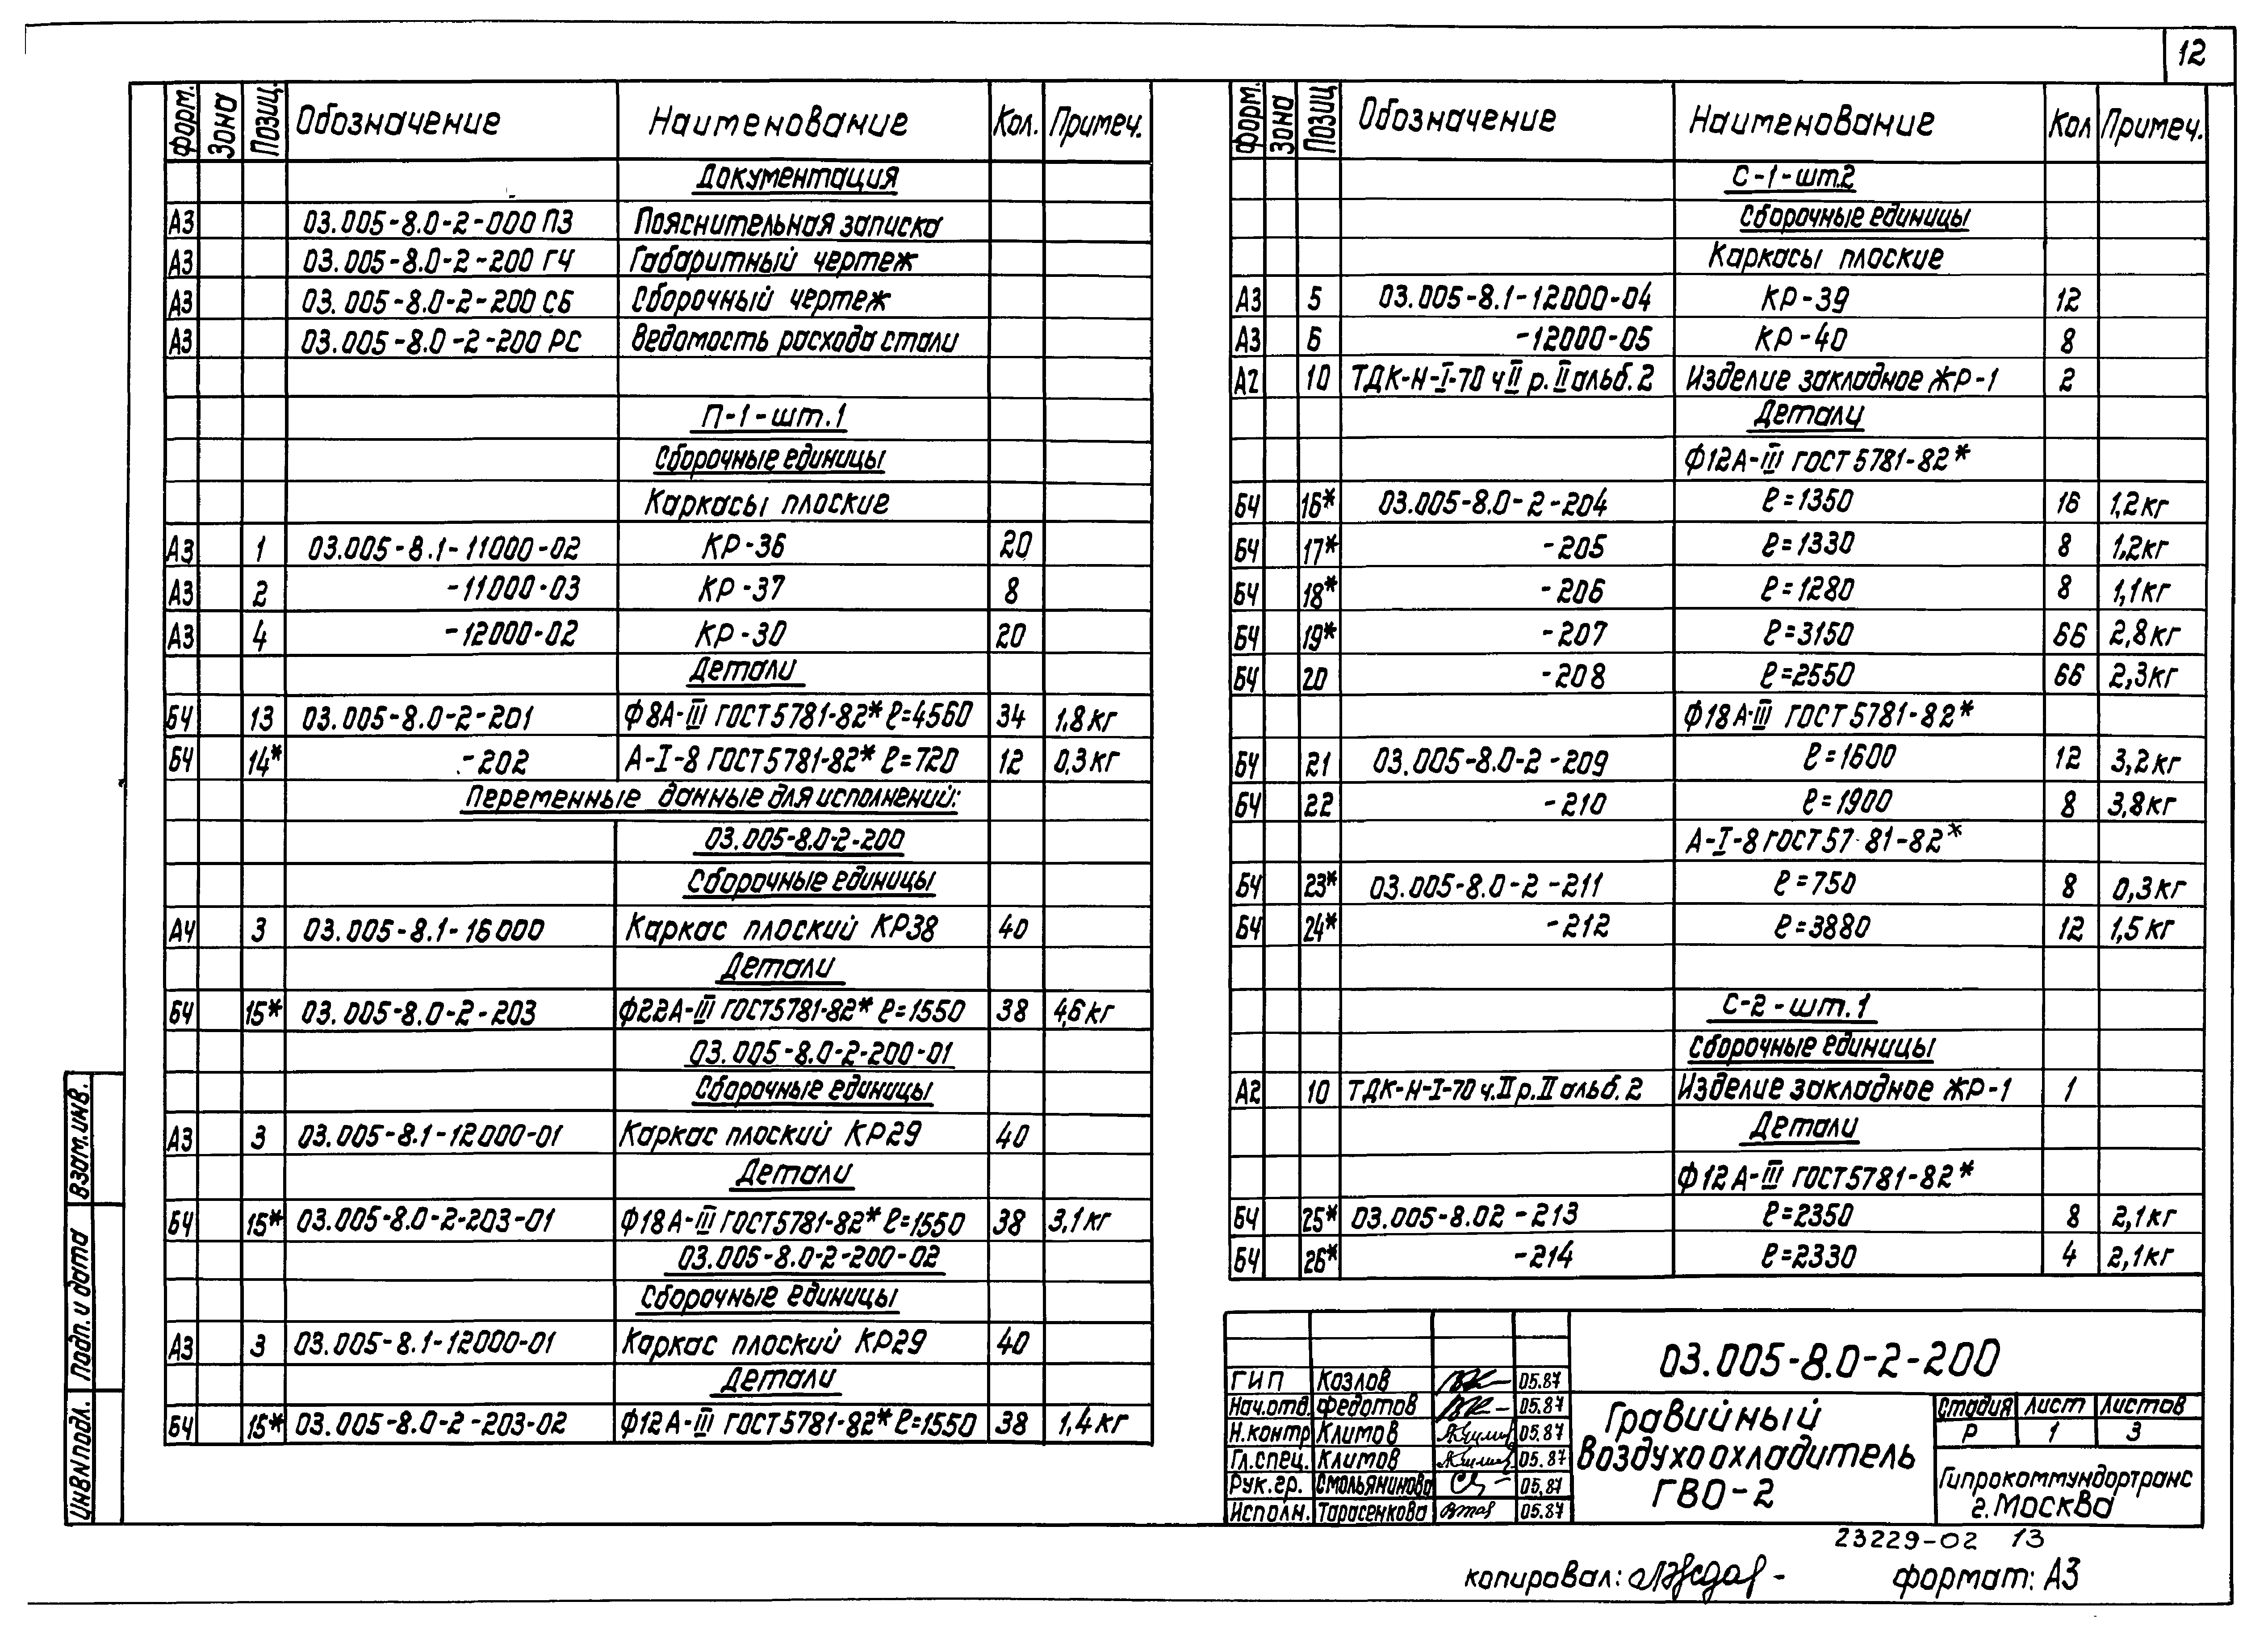 12
Форм. Зона Позиц. Обозначение Наименование Кол. Примеч.
Документация
А3 03.005-8.0-2-000 ПЗ Пояснительная записка
А3 03.005-8.0-2-200 ГЧ Габаритный чертеж
А3 03.005-8.0-2-200 СБ Сборочный чертеж
А3 03.005-8.0-2-200 РС Ведомость расхода стали
П-1-шт.1
Сборочные единицы
Каркасы плоские
А3 1 03.005-8.1-11000-02 КР-36 20
А3 2 -11000-03 КР-37 8
А3 4 -12000-02 КР-30 20
Детали
БЧ 13 03.005-8.0-2-201 Ф8А-III ГОСТ 5781-82* ℓ=4560 34 1,8кг
БЧ 14* -202 А-I-8 ГОСТ 5781-82* ℓ=720 12 0,3кг
Переменные данные для исполнений:
03.005-8.0-2-200
Сборочные единицы
А4 3 03.005-8.1-16000 Каркас плоский КР38 40
Детали
БЧ 15* 03.005-8.0-2-203 Ф22А-III ГОСТ5781-82* ℓ=1550 38 4,6кг
03.005-8.0-2-200-01
Сборочные единицы
А3 3 03.005-8.1-12000-01 Каркас плоский КР29 40
Детали
БЧ 15* 03.005-8.0-2-203-01 Ф18А-III ГОСТ5781-82* ℓ=1550 38 3,1кг
03.005-8.0-2-200-02
Сборочные единицы
А3 3 03.005-8.1-12000-01 Каркас плоский КР29 40
Детали
БЧ 15* 03.005-8.0-2-203-02 Ф12А-III ГОСТ5781-82* ℓ=1550 38 1,4кг
Форм. Зона Позиц Обозначение Наименование Кол Примеч.
С-1-шт.2
Сборочные единицы
Каркасы плоские
А3 5 03.005-8.1-12000-04 КР-39 12
А3 6 -12000-05 КР-40 8
А2 10 ТДК-Н-I-70 ч II р. II альб. 2 Изделие закладное ЖР-1 2
Детали
Ф12А-III ГОСТ 5781-82*
БЧ 16* 03.005-8.0-2-204 ℓ=1350 16 1,2кг
БЧ 17* -205 ℓ=1330 8 1,2кг
БЧ 18* -206 ℓ=1280 8 1,1кг
БЧ 19* -207 ℓ=3150 66 2,8кг
БЧ 20 -208 ℓ=2550 66 2,3кг
Ф18А-III ГОСТ 5781-82*
БЧ 21 03.005-8.0-2-209 ℓ=1600 12 3,2кг
БЧ 22 -210 ℓ=1900 8 3,8кг
А-I-8 ГОСТ 57 81-82*
БЧ 23* 03.005-8.0-2-211 ℓ=750 8 0,3кг
БЧ 24* -212 ℓ=3880 12 1,5кг
С-2-шт.1
Сборочные единицы
А2 10 ТДК-Н-I-70 ч. II р. II альб. 2 Изделие закладное ЖР-1 1
Детали
Ф12А-III ГОСТ5781-82*
БЧ 25* 03.005-8.02-213 ℓ=2350 8 2,1кг
БЧ 26* -214 ℓ=2330 4 2,1кг
Взам.инв.
Подп. и дата
Инв N подл.
03.005-8.0-2-200
ГИП Козлов 05.87
Нач.отд. Федотов 05.87
Н.контр Климов 05.87
Гл.спец. Климов 05.87
Рук.гр. Смольянинова 05.87
Исполн. Тарасенкова 05.87
Гравийный
воздухоохладитель
ГВО-2
Стадия Лист Листов
Р 1 3
Гипрокоммундортранс
г. Москва
23229-02 13
копировал: формат: А3